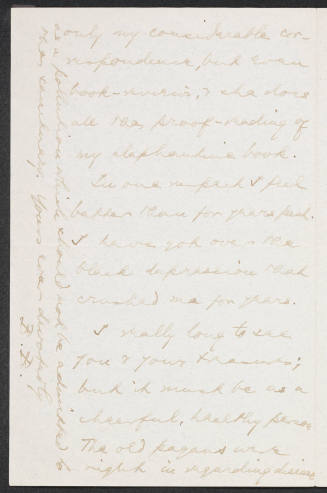 only my considerable cor-
respondence, but even
book-reviews, & she does
all the proof-reading of
my elephantine book.
In one respect I feel
better than for years past.
I have got over the
black depression that
crushed me for years.
I really love to see
you & your treasures;
but it must be as a
cheerful, healthy person.
The old pagans were
right in regarding disease
as a pollution which should not be admitted to
the sanctuary. Yours ever devotedly